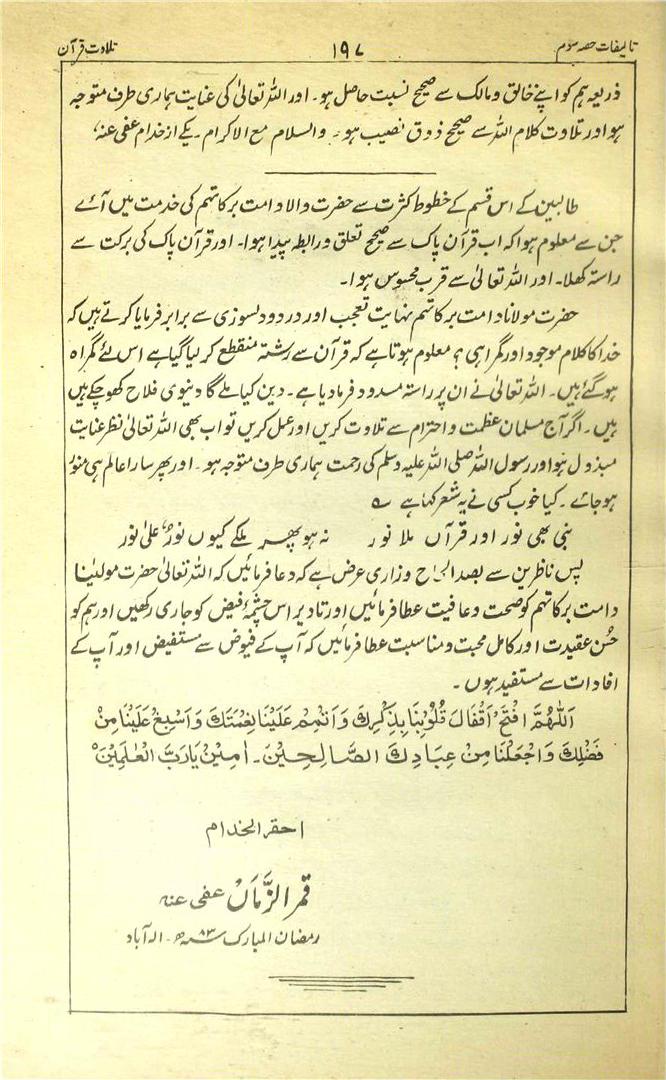 تالیفات حصہ سوم
۱۹۷
تلاوت قرآن
ذریعہ ہم کو اپنے خالق و مالک سے صحیح نسبت حاصل ہو۔ اور اللہ تعالیٰ کی عنایت ہماری طرف متوجہ
ہو اور تلاوت کلام اللہ سے صحیح ذوق نصیب ہو۔ والسلام مع الاکرام۔ یکے از خدام عفی عنہ،
طالبین کے اس قسم کے خطوط کثرت سے حضرت والا دامت برکاتہم کی خدمت میں آئے
جن سے معلوم ہوا کہ اب قرآن پاک سے صحیح تعلق و رابطہ پیدا ہوا۔ اور قرآن پاک کی برکت سے
راستہ کھلا۔ اور اللہ تعالیٰ سے قرب محسوس ہوا۔
حضرت مولانا دامت برکاتہم نہایت تعجب اور درد و دلسوزی سے برابر فرمایا کرتے ہیں کہ
خدا کا کلام موجود اور گمراہی؟ معلوم ہوتا ہے کہ قرآن سے رشتہ منقطع کر لیا گیا ہے اس لئے گمراہ
ہو گئے ہیں۔ اللہ تعالیٰ نے ان پر راستہ مسدود فرما دیا ہے۔ دین کیا ملے گا دنیوی فلاح کھو چکے ہیں
ہیں۔ اگر آج مسلمان عظمت و احترام سے تلاوت کریں اور عمل کریں تو اب بھی اللہ تعالیٰ نظر عنایت
مبذول ہو اور رسول اللہ صلی اللہ علیہ وسلم کی رحمت ہماری طرف متوجہ ہو۔ اور پھر سارا عالم ہی منور
ہو جائے۔ کیا خوب کسی نے یہ شعر کہا ہے ؎
نبی بھی نور اور قرآں ملا نور نہ ہو پھر ملکے کیوں نورٌ علیٰ نور
پس ناظرین سے بصد الحاح وزاری عرض ہے کہ دعا فرمائیں کہ اللہ تعالیٰ حضرت مولینا
دامت برکاتہم کو صحت و عافیت عطا فرمائیں اور تادیر اس چشمۂ فیض کو جاری رکھیں اور ہم کو
حُسن عقیدت اور کامل محبت و مناسبت عطا فرمائیں کہ آپ کے فیوض سے مستفیض اور آپ کے
افادات سے مستفید ہوں۔
اَللّٰهُمَّ افْتَحْ اَقْفَالَ قُلُوْبِنَا بِذِكْرِكَ وَاَتْمِمْ عَلَيْنَا نِعْمَتَكَ وَاَسْبِغْ عَلَيْنَا مِنْ
فَضْلِكَ وَاجْعَلْنَا مِنْ عِبَادِكَ الصَّالِحِيْنَ۔ اٰمِيْنَ يَا رَبَّ الْعٰلَمِيْنَ
احقر الخدام
قمر الزّماں عفی عنہ
رمضان المبارک ۸۳ھ۔ الہ آباد